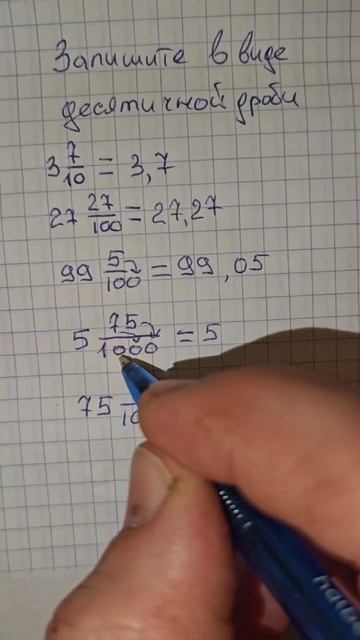 Запишите в виде
десятичной дроби
3 7/10 = 3,7
27 27/100 = 27,27
99 5/100 = 99,05
5 75/1000 = 5
75